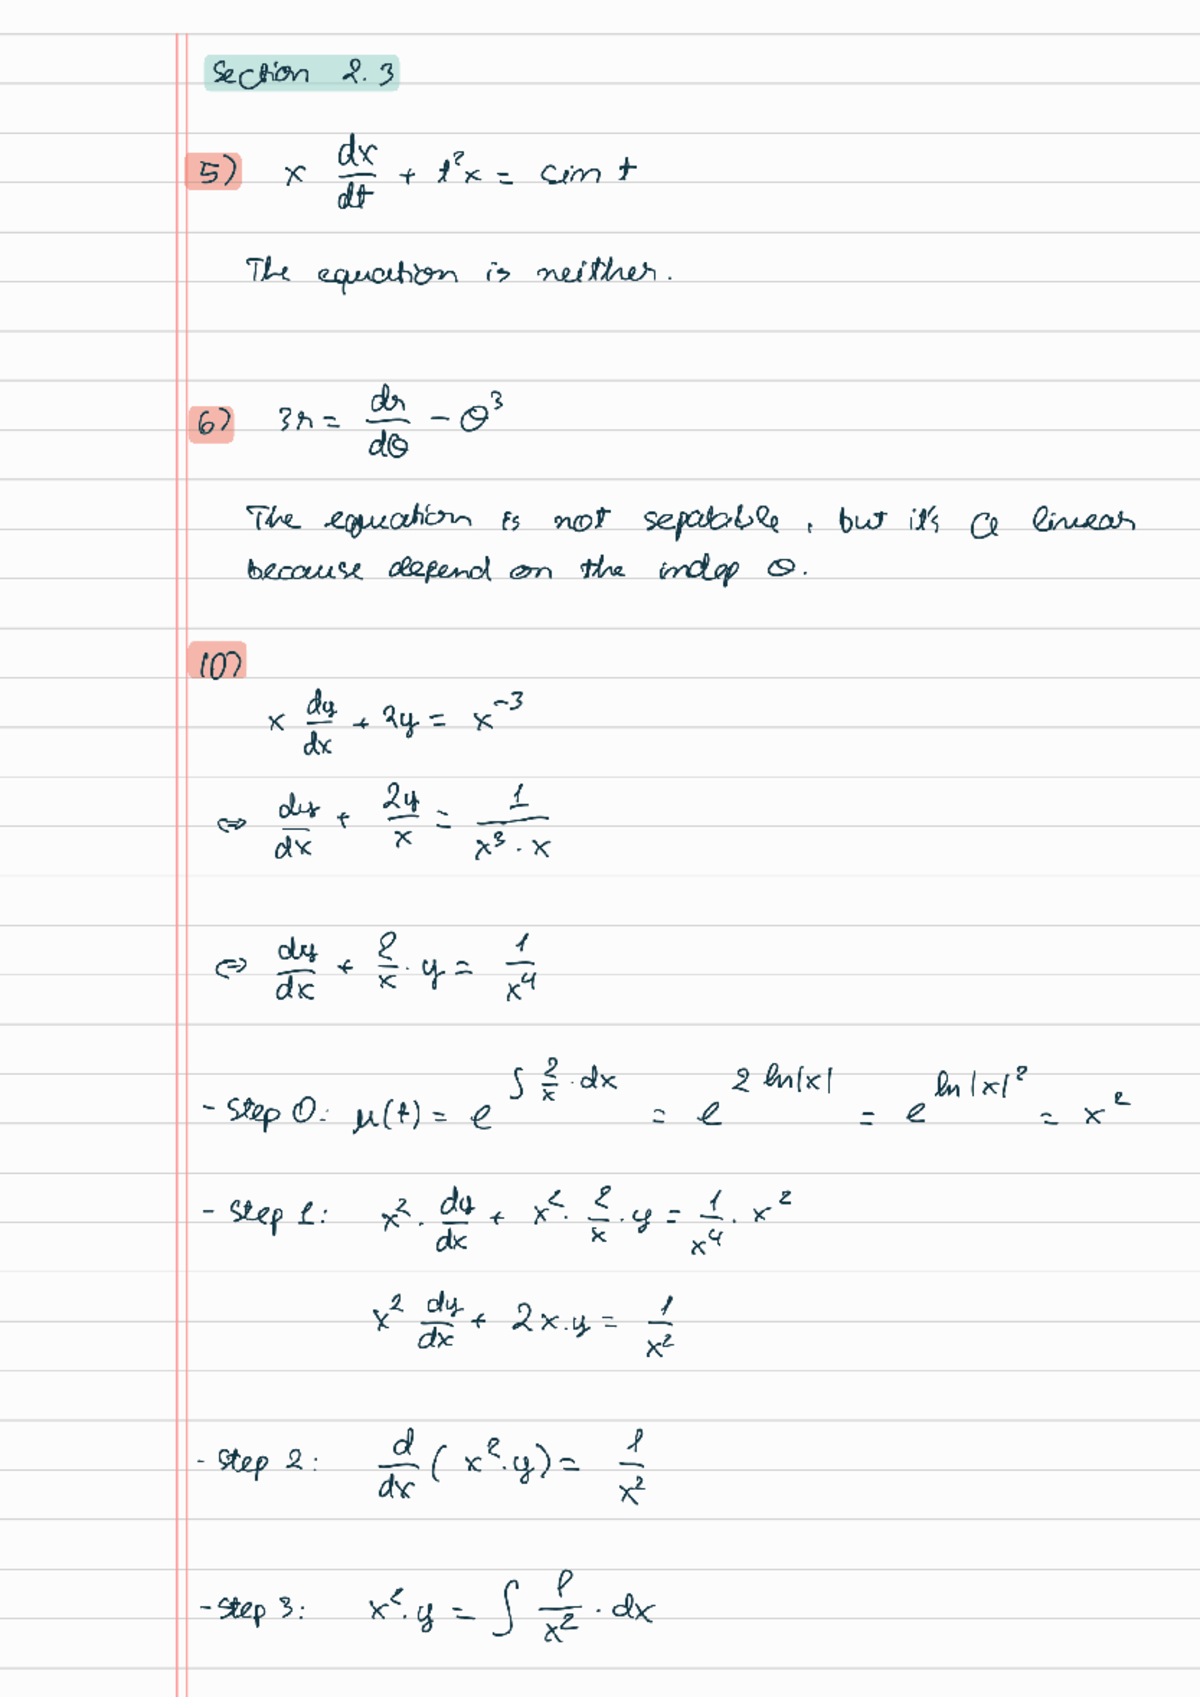 Section 2.3
5) x dx/dt + t²x = sin t
The equation is neither.
6) 3r = dr/dθ - θ³
The equation is not sepatable, but it's a linear
because depend on the indep θ.
10)
x dy/dx + 2y = x⁻³
⇔ dy/dx + 2y/x = 1/(x³ · x)
⇔ dy/dx + 2/x · y = 1/x⁴
- Step 0: μ(t) = e^(∫ 2/x · dx) = e^(2 ln|x|) = e^(ln|x|²) = x²
- Step 1: x² · dy/dx + x² · 2/x · y = 1/x⁴ · x²
x² dy/dx + 2x · y = 1/x²
- Step 2: d/dx (x² · y) = 1/x²
- Step 3: x² · y = ∫ 1/x² · dx